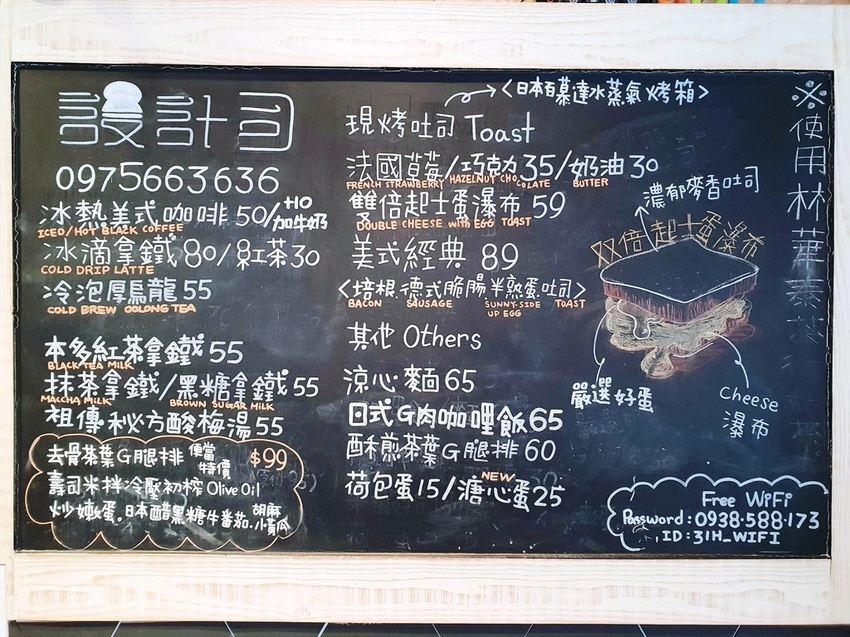 設計司
0975663636
冰熱美式咖啡50/+10加牛奶
ICED/HOT BLACK COFFEE
冰滴拿鐵80/紅茶30
COLD DRIP LATTE
冷泡厚烏龍55
COLD BREW OOLONG TEA
本多紅茶拿鐵55
BLACK TEA MILK
抹茶拿鐵/黑糖拿鐵55
MACCHA MILK BROWN SUGAR MILK
祖傳秘方酸梅湯55
去骨茶葉G腿排便當特價 $99
壽司米拌冷壓初榨Olive Oil
炒嫩蛋.日本醋黑糖牛番茄.胡麻小黃瓜
<日本石慕達水蒸氣烤箱>
現烤吐司Toast
法國草莓/巧克力35/奶油30
FRENCH STRAWBERRY HAZELNUT CHOCOLATE BUTTER
雙倍起士蛋瀑布59
DOUBLE CHEESE with EGG TOAST
美式經典 89
<培根.德式脆腸半熟蛋吐司>
BACON SAUSAGE SUNNY-SIDE UP EGG TOAST
其他Others
涼心麵65
日式G肉咖哩飯65
酥煎茶葉G腿排60
NEW
荷包蛋15/溏心蛋25
濃郁麥香吐司
双倍起士蛋瀑布
嚴選好蛋
Cheese
瀑布
Free WiFi
Password:0938-588-173
ID:31H_WIFI
※使用林華泰